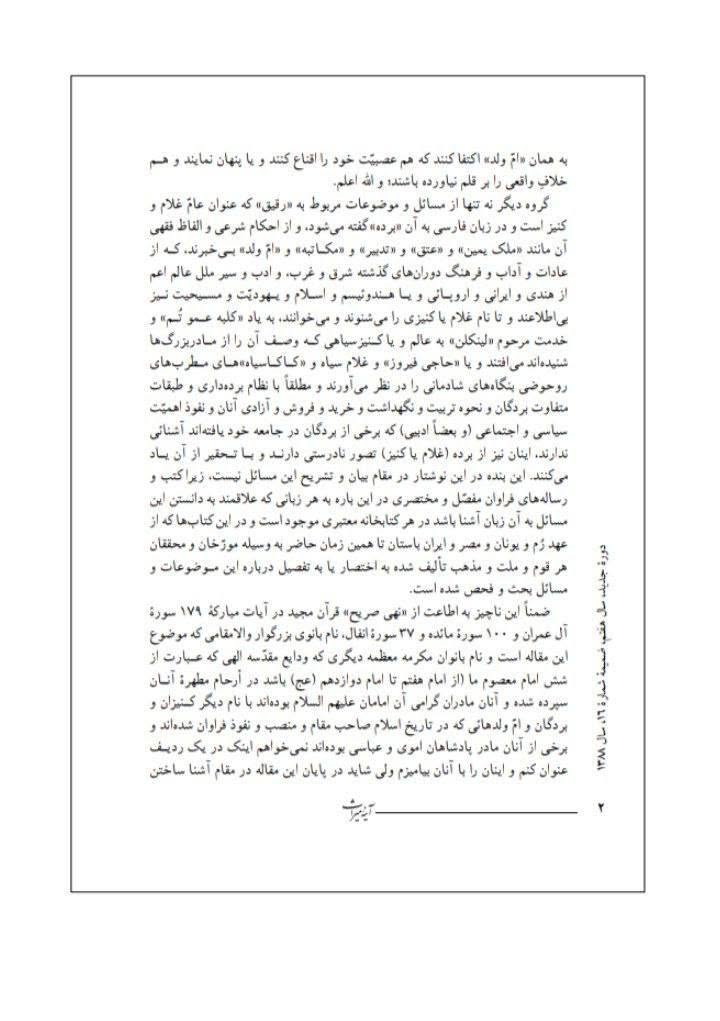 به همان «امّ ولد» اکتفا کنند که هم عصبیّت خود را اقناع کنند و یا پنهان نمایند و هـم
خلافِ واقعی را بر قلم نیاورده باشند؛ و الله اعلم.
گروه دیگر نه تنها از مسائل و موضوعات مربوط به «رقیق» که عنوان عامّ غلام و
کنیز است و در زبان فارسی به آن «برده» گفته می‌شود، و از احکام شرعی و الفاظ فقهی
آن مانند «ملک یمین» و «عتق» و «تدبیر» و «مکـاتبه» و «امّ ولد» بـی‌خبرند، کـه از
عادات و آداب و فرهنگ دوران‌های گذشته شرق و غرب، و ادب و سیر ملل عالم اعم
از هندی و ایرانی و اروپـائی و یـا هـندوئیسم و اسـلام و یـهودیّت و مسـیحیت نـیز
بی‌اطلاعند و تا نام غلام یا کنیزی را می‌شنوند و می‌خوانند، به یاد «کلبه عـمو تُـم» و
خدمت مرحوم «لینکلن» به عالم و یا کـنیز سیاهی کـه وصـف آن را از مـادربزرگ‌ها
شنیده‌اند می‌افتند و یا «حاجی فیروز» و غلام سیاه و «کـاکـاسیاه»هـای مـطرب‌های
روحوضی بنگاه‌های شادمانی را در نظر می‌آورند و مطلقاً با نظام برده‌داری و طبقات
متفاوت بردگان و نحوه تربیت و نگهداشت و خرید و فروش و آزادی آنان و نفوذ اهمیّت
سیاسی و اجتماعی (و بعضاً ادبیی) که برخی از بردگان در جامعه خود یافته‌اند آشنائی
ندارند، اینان نیز از برده (غلام یا کنیز) تصور نادرستی دارنـد و بـا تـحقیر از آن یـاد
می‌کنند. این بنده در این نوشتار در مقام بیان و تشریح این مسائل نیست، زیرا کتب و
رساله‌های فراوان مفصّل و مختصری در این باره به هر زبانی که علاقمند به دانستن این
مسائل به آن زبان آشنا باشد در هر کتابخانه معتبری موجود است و در این کتاب‌ها که از
عهد رُم و یونان و مصر و ایران باستان تا همین زمان حاضر به وسیله مورّخان و محققان
هر قوم و ملت و مذهب تألیف شده به اختصار یا به تفصیل درباره این مـوضوعات و
مسائل بحث و فحص شده است.
ضمناً این ناچیز به اطاعت از «نهی صریح» قرآن مجید در آیات مبارکهٔ ۱۷۹ سورهٔ
آل عمران و ۱۰۰ سورهٔ مائده و ۳۷ سورهٔ انفال، نام بانوی بزرگوار والامقامی که موضوع
این مقاله است و نام بانوان مکرمه معظمه دیگری که ودایع مقدّسه الهی که عـبارت از
شش امام معصوم ما (از امام هفتم تا امام دوازدهم (عج) باشد در أرحام مطهرهٔ آنـان
سپرده شده و آنان مادران گرامی آن امامان علیهم السلام بوده‌اند با نام دیگر کـنیزان و
بردگان و امّ ولدهائی که در تاریخ اسلام صاحب مقام و منصب و نفوذ فراوان شده‌اند و
برخی از آنان مادر پادشاهان اموی و عباسی بوده‌اند نمی‌خواهم اینک در یک ردیـف
عنوان کنم و اینان را با آنان بیامیزم ولی شاید در پایان این مقاله در مقام آشنا ساختن
دورهٔ جدید، سال هفتم، ضمیمهٔ شمارهٔ ۱۶، سال ۱۳۸۸
۲ آینهٔ میراث